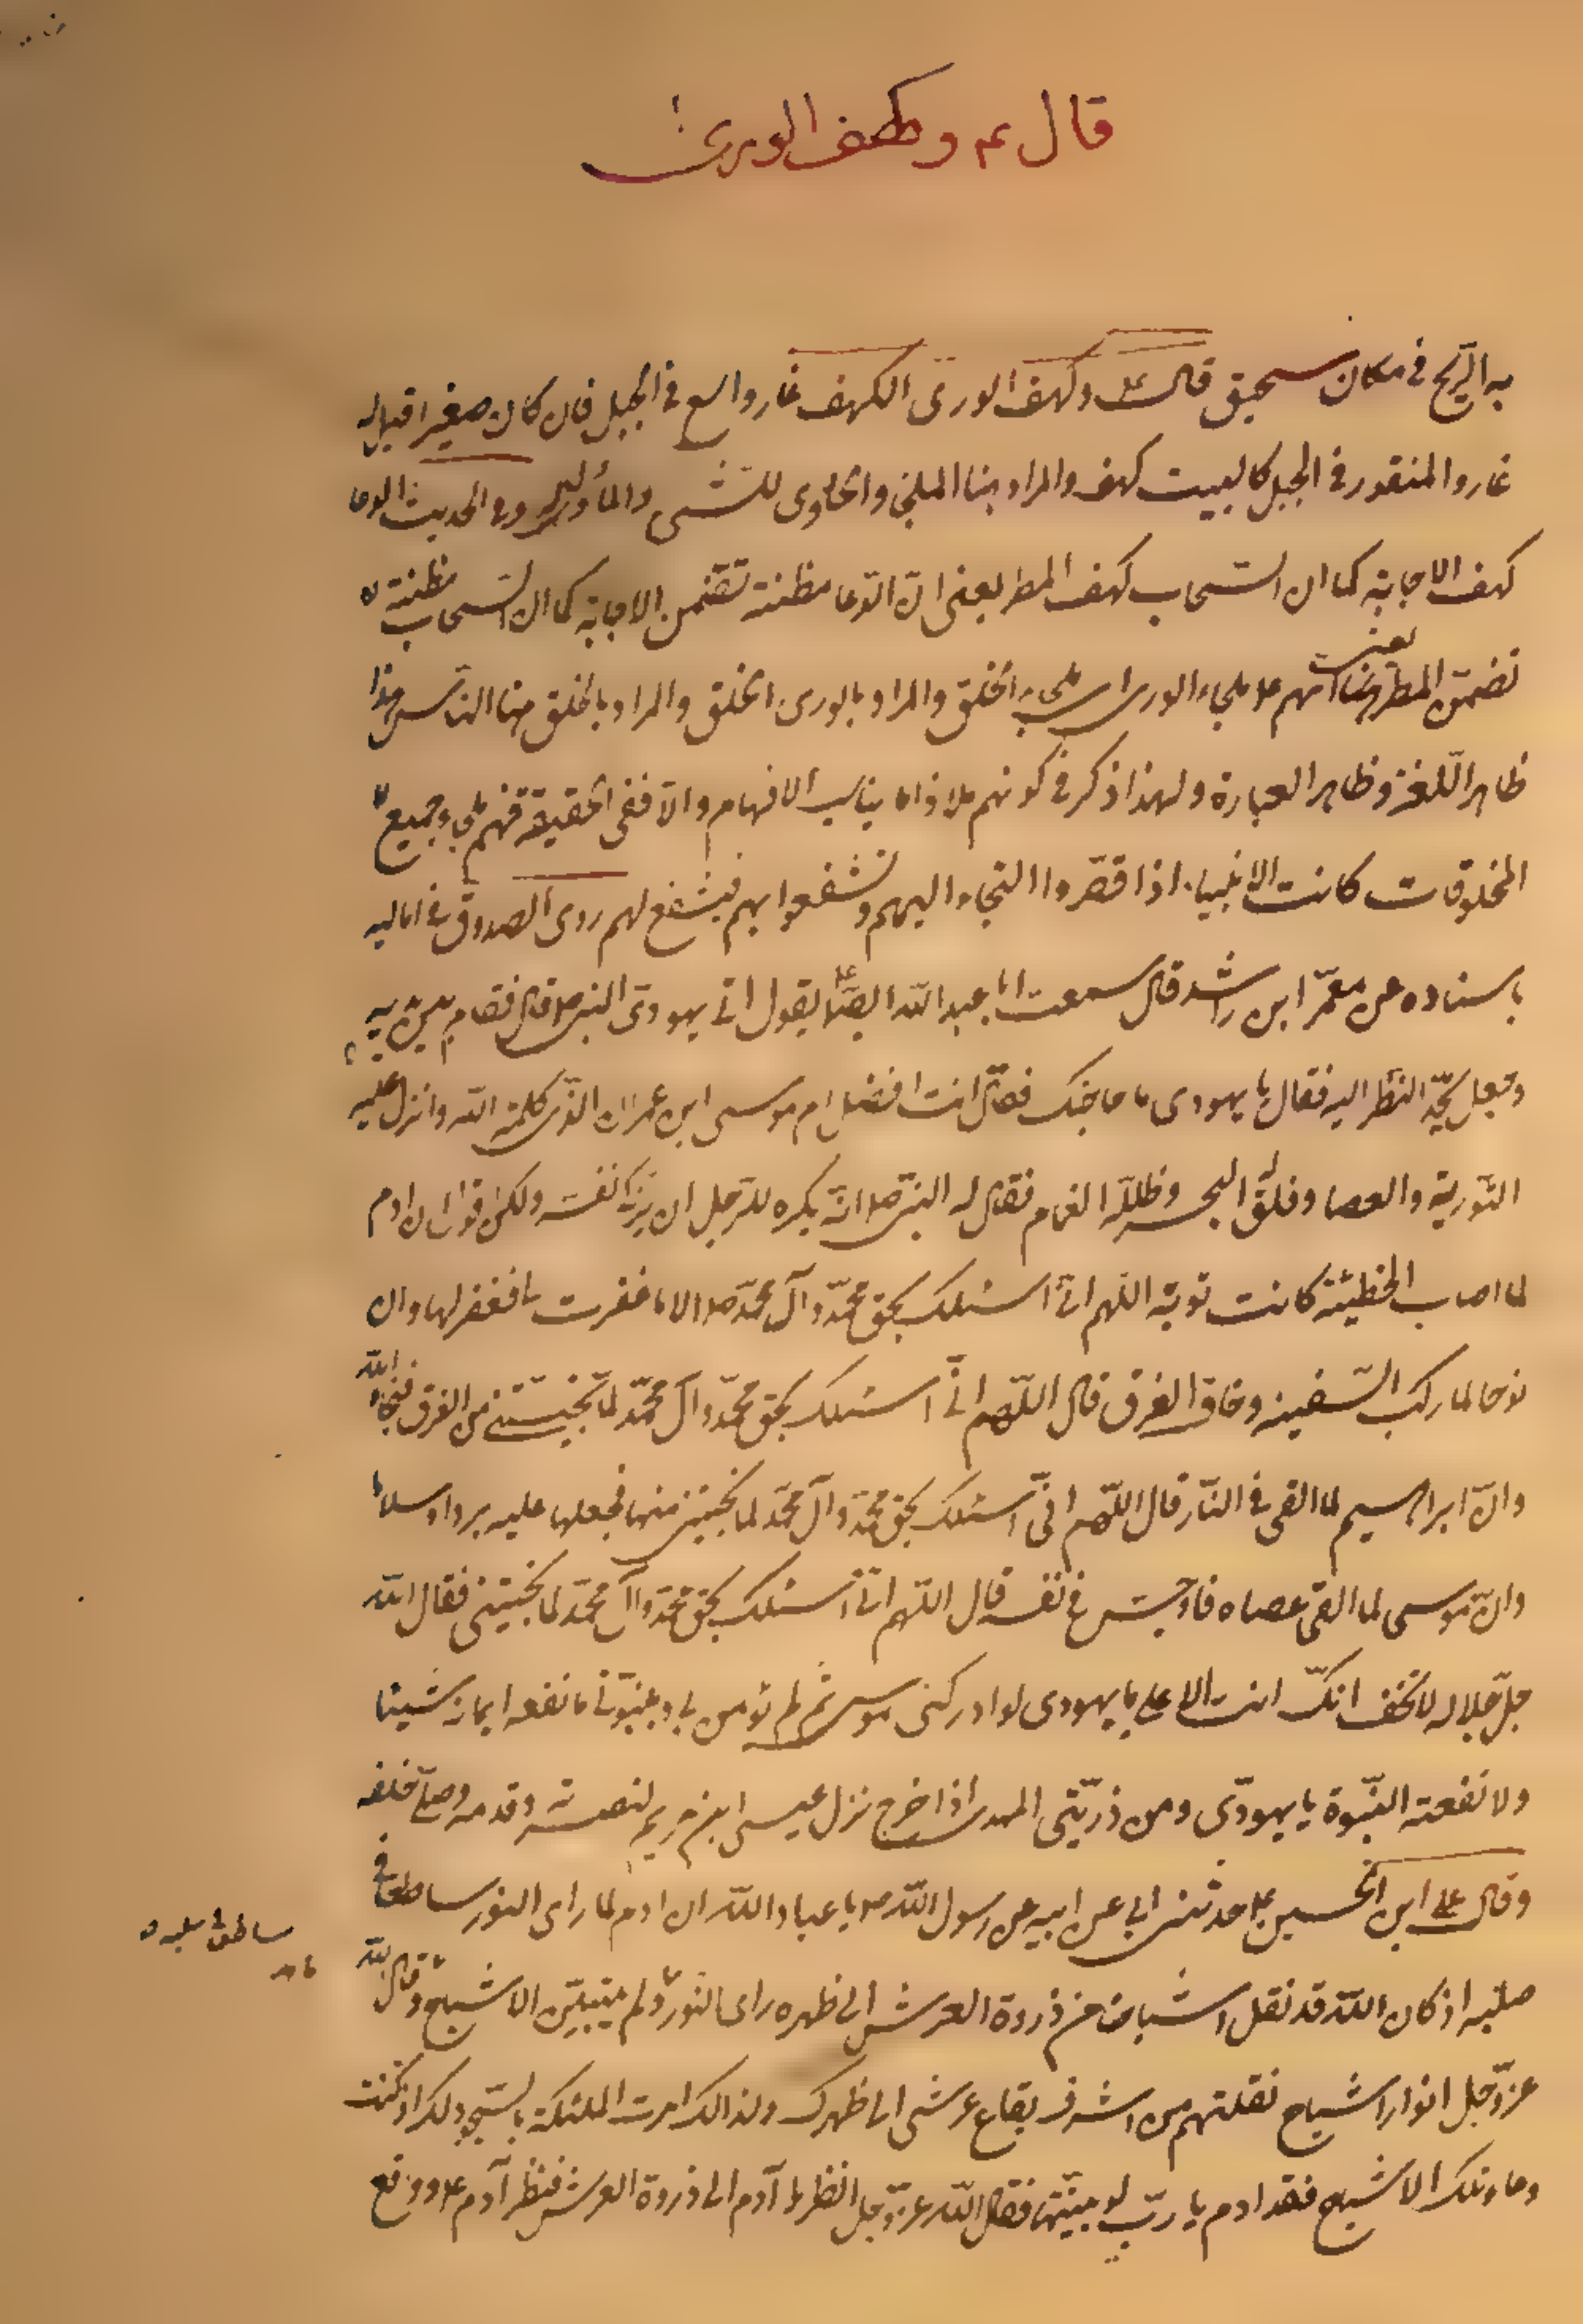 قال ع وكهف الورى
به الريح في مكان سحيق قال ع وكهف الورى الكهف غار واسع في الجبل فان كان صغيرا قيل له
غار والمنقور في الجبل كالبيت كهف والمراد هنا الملجئ والحاوى للشىء والمأول اليه وفى الحديث الدعا
كهف الاجابة كما ان السّحاب كهف المطر يعنى انّ الدّعا مظنة تضمن الاجابة كما ان السّحاب مظنته
تضمن المطر يعنى هنا انهم ع ملجاء الورى اى ملجاء الخلق والمراد بالورى الخلق والمراد بالخلق هنا الناس هذا
ظاهر اللّغة وظاهر العبارة ولهذا ذكر في كونهم ملاذا ما يناسب الافهام والّا ففى الحقيقة فهم ملجاء جميع
المخلوقات كانت الانبياء اذا قصّروا التجاءوا اليهم وتشفعوا بهم فيشفع لهم روى الصدوق في اماليه
باسناده عن معمّر ابن راشد قال سمعت ابا عبد اللّه الصّ ع يقول اتى يهودىّ النبى ص قال فقام بين يديه
وجعل يحدّ النّظر اليه فقال يا يهودى ما حاجتك فقال انت افضل ام موسى ابن عمران الذّى كلمه اللّه وانزل عليه
التّورية والعصا وفلق له البحر وظللّه الغمام فقال له النبىّ ص انّه يكره للرّجل ان يزكّى نفسه ولكن اقول ان ادم
لما اصاب الخطيئة كانت توبته اللّهم انّى اسئلك بحق محمّد وآل محمّد ص الا ما غفرت لى فغفر لها وان
نوحا لما ركب السّفينه وخاف الغرق قال اللّهم انّى اسئلك بحق محمّد وآل محمّد لمّا نجّيتنى من الغرق فنجاه اللّه
وانّ ابراهيم لما القى في النّار قال اللّهم انّى اسئلك بحق محمّد وآل محمّد لما نجيتنى منها فجعلها عليه بردا وسلاما
وانّ موسى لما القى عصاه فاوجس في نفسه قال اللّهم انّى اسئلك بحق محمّد وآل محمّد لما نجيتنى فقال اللّه
جلّ جلاله لا تخف انكّ انت الاعلى يا يهودى لو ادركنى موسى ثم لم يؤمن بى وبنبوّتى ما نفعه ايمانه شيئا
ولا نفعته النّبوة يا يهودّى ومن ذريّتى المهدى اذا خرج نزل عيسى ابن مريم لنصرته وقدمه وصلّى خلفه
وقال على ابن الحسين ع حدثنى ابى عن ابيه عن رسول اللّه ص يا عباد اللّه ان ادم لما راى النور ساطعا في
صلبه اذ كان اللّه قد نقل اشباحنا من ذروة العرش الى ظهره راى النور ولم يتبيّن الاشباح وقال اللّه
عزّ وجل انوار اشباح نقلتهم من اشرف بقاع عرشى الى ظهرك ولذالك امرت الملئكة بالسّجود لك اذ كنت
وعاء تلك الاشباح فقد ادم يا ربّ لو بينّتها فقال اللّه عزّ وجل انظر يا آدم الى ذروة العرش فنظر آدم ع ووقع